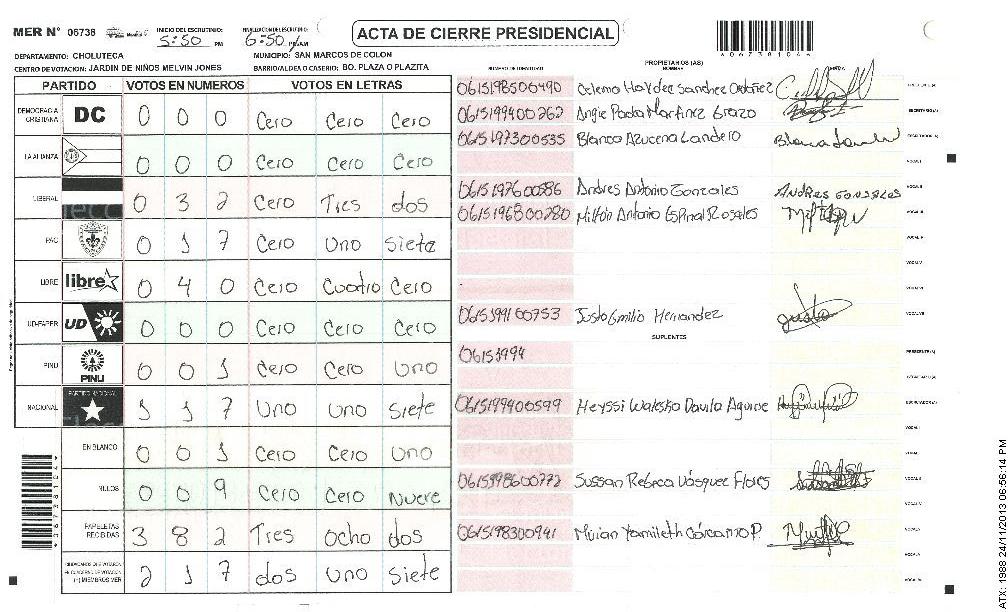 MER N° 06736
INICIO DEL ESCRUTINIO: 5:50 PM
FINALIZACION DEL ESCRUTINIO: 6:50 PM/AM
ACTA DE CIERRE PRESIDENCIAL
DEPARTAMENTO: CHOLUTECA
MUNICIPIO: SAN MARCOS DE COLON
CENTRO DE VOTACION: JARDIN DE NIÑOS MELVIN JONES
BARRIO/ALDEA O CASERIO: BO. PLAZA O PLAZITA
PARTIDO VOTOS EN NUMEROS VOTOS EN LETRAS
DEMOCRACIA CRISTIANA DC 0 0 0 Cero Cero Cero
LA ALIANZA 0 0 0 Cero Cero Cero
LIBERAL 0 3 2 Cero Tres dos
PAC 0 1 7 Cero Uno Siete
LIBRE libre 0 4 0 Cero Cuatro Cero
UD-FAPER UD 0 0 0 Cero Cero Cero
PINU PINU 0 0 1 Cero Cero Uno
NACIONAL PARTIDO NACIONAL 1 1 7 Uno Uno Siete
EN BLANCO 0 0 1 Cero Cero Uno
NULOS 0 0 9 Cero Cero Nueve
PAPELETAS RECIBIDAS 3 8 2 Tres Ocho dos
(+) MIEMBROS MER 2 1 7 dos Uno Siete
NUMERO DE IDENTIDAD
PROPIETARIOS (AS)
NOMBRE
FIRMA
0615198500490 Celema Haydee Sanchez Ordoñez PRESIDENTE (A)
0615199400262 Angie Paola Martinez Erazo SECRETARIO (A)
0615197300535 Blanca Azucena Landero ESCRUTADOR (A)
VOCAL I
0615197600586 Andres Antonio Gonzales ANDRES GONZALES VOCAL II
0615196800280 Milton Antonio Espinal Rosales VOCAL III
VOCAL IV
VOCAL V
VOCAL VI
0615199100753 Justo Emilio Hernandez justo VOCAL VII
SUPLENTES
06151994 PRESIDENTE (A)
SECRETARIO (A)
0615199400599 Heyssi Waleska Davila Aguirre ESCRUTADOR (A)
VOCAL I
0615198600772 Sussan Rebeca Vásquez Flores
0615198300941 Mirian Yamileth Cárcamo P.
ATX: 1988 24/11/2013 06:56:14 PM